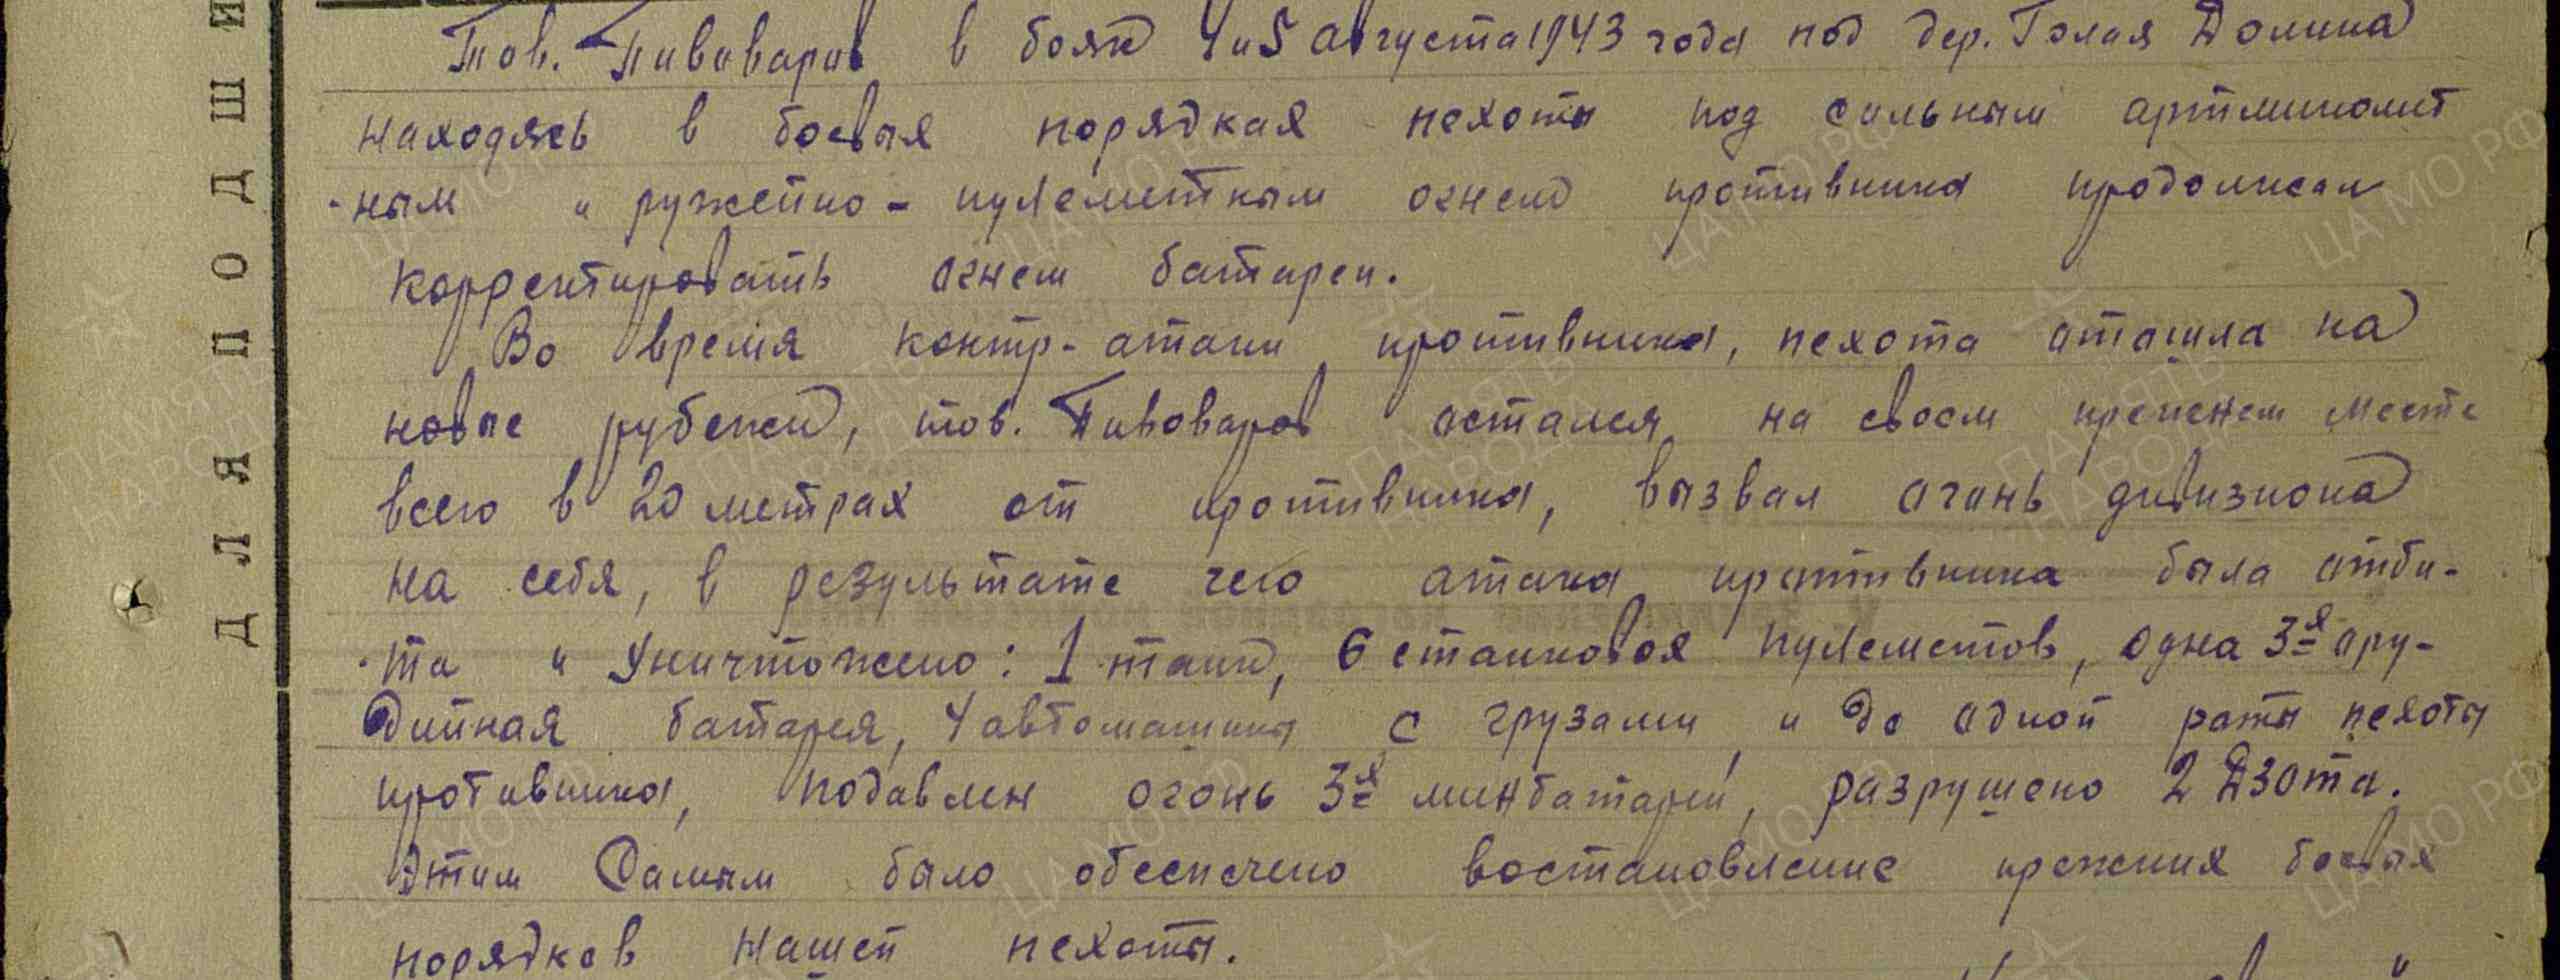 Тов. Пивоваров в боях 4 и 5 августа 1943 года под дер. Голая Долина
находясь в боевых порядках пехоты под сильным артминомет
-ным и ружейно-пулеметным огнем противника продолжал
корректировать огнем батареи.
Во время контр-атаки противника, пехота отошла на
новые рубежи, тов. Пивоваров остался на своем прежнем месте
всего в 20 метрах от противника, вызвал огонь дивизиона
на себя, в результате чего атака противника была отби-
та и уничтожено: 1 танк, 6 станковых пулеметов, одна 3-я ору-
дийная батарея, 4 автомашины с грузами и до одной роты пехоты
противника, подавлен огонь 3-х минбатарей, разрушено 2 Дзота.
Этим самым было обеспечено востановление прежних боевых
порядков нашей пехоты.
ДЛЯ ПОДШИ
ЦАМО РФ
ПАМЯТЬ НАРОДА